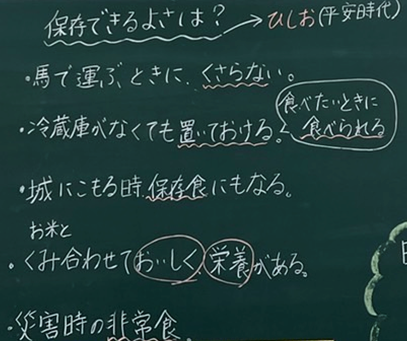 保存できるよさは？→ひしお(平安時代)
・馬で運ぶときに、くさらない。
・冷蔵庫がなくても置いておける。
食べたいときに
食べられる
・城にこもる時、保存食にもなる。
お米と
・くみ合わせておいしく、栄養がある。
・災害時の非常食